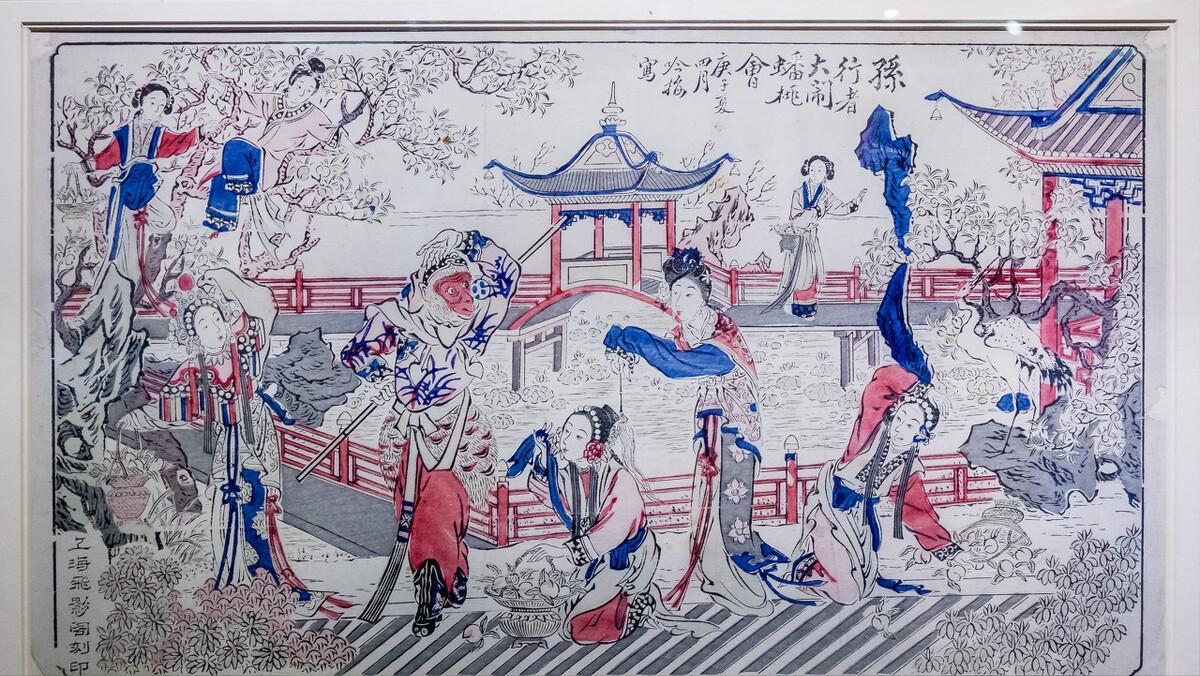 孫
行者
大闹
蟠桃
會
庚子夏
四月
吟梅
寫
上海飛影阁刻印